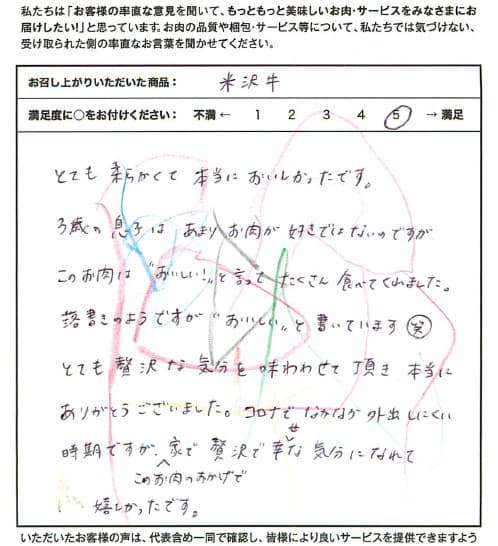 私たちは「お客様の率直な意見を聞いて、もっともっと美味しいお肉・サービスをみなさまにお
届けしたい!」と思っています。お肉の品質や梱包・サービス等について、私たちでは気づけない、
受け取られた側の率直なお言葉を聞かせてください。
お召し上がりいただいた商品： 米沢牛
満足度に○をお付けください： 不満 ← 1 2 3 4 5 → 満足
とても 柔らかくて 本当に おいしかったです。
3歳の 息子は あまり お肉が 好きではないのですが
このお肉は "おいしい!"と 言って たくさん 食べてくれました。
落書きのようですが "おいしい"と 書いています 笑
とても 贅沢な 気分を 味わわせて 頂き 本当に
ありがとうございました。コロナで なかなか 外出しにくい
時期ですが、家で 贅沢で 幸せな 気分になれて
このお肉のおかげで
嬉しかったです。
いただいたお客様の声は、代表含め一同で確認し、皆様により良いサービスを提供できますよう